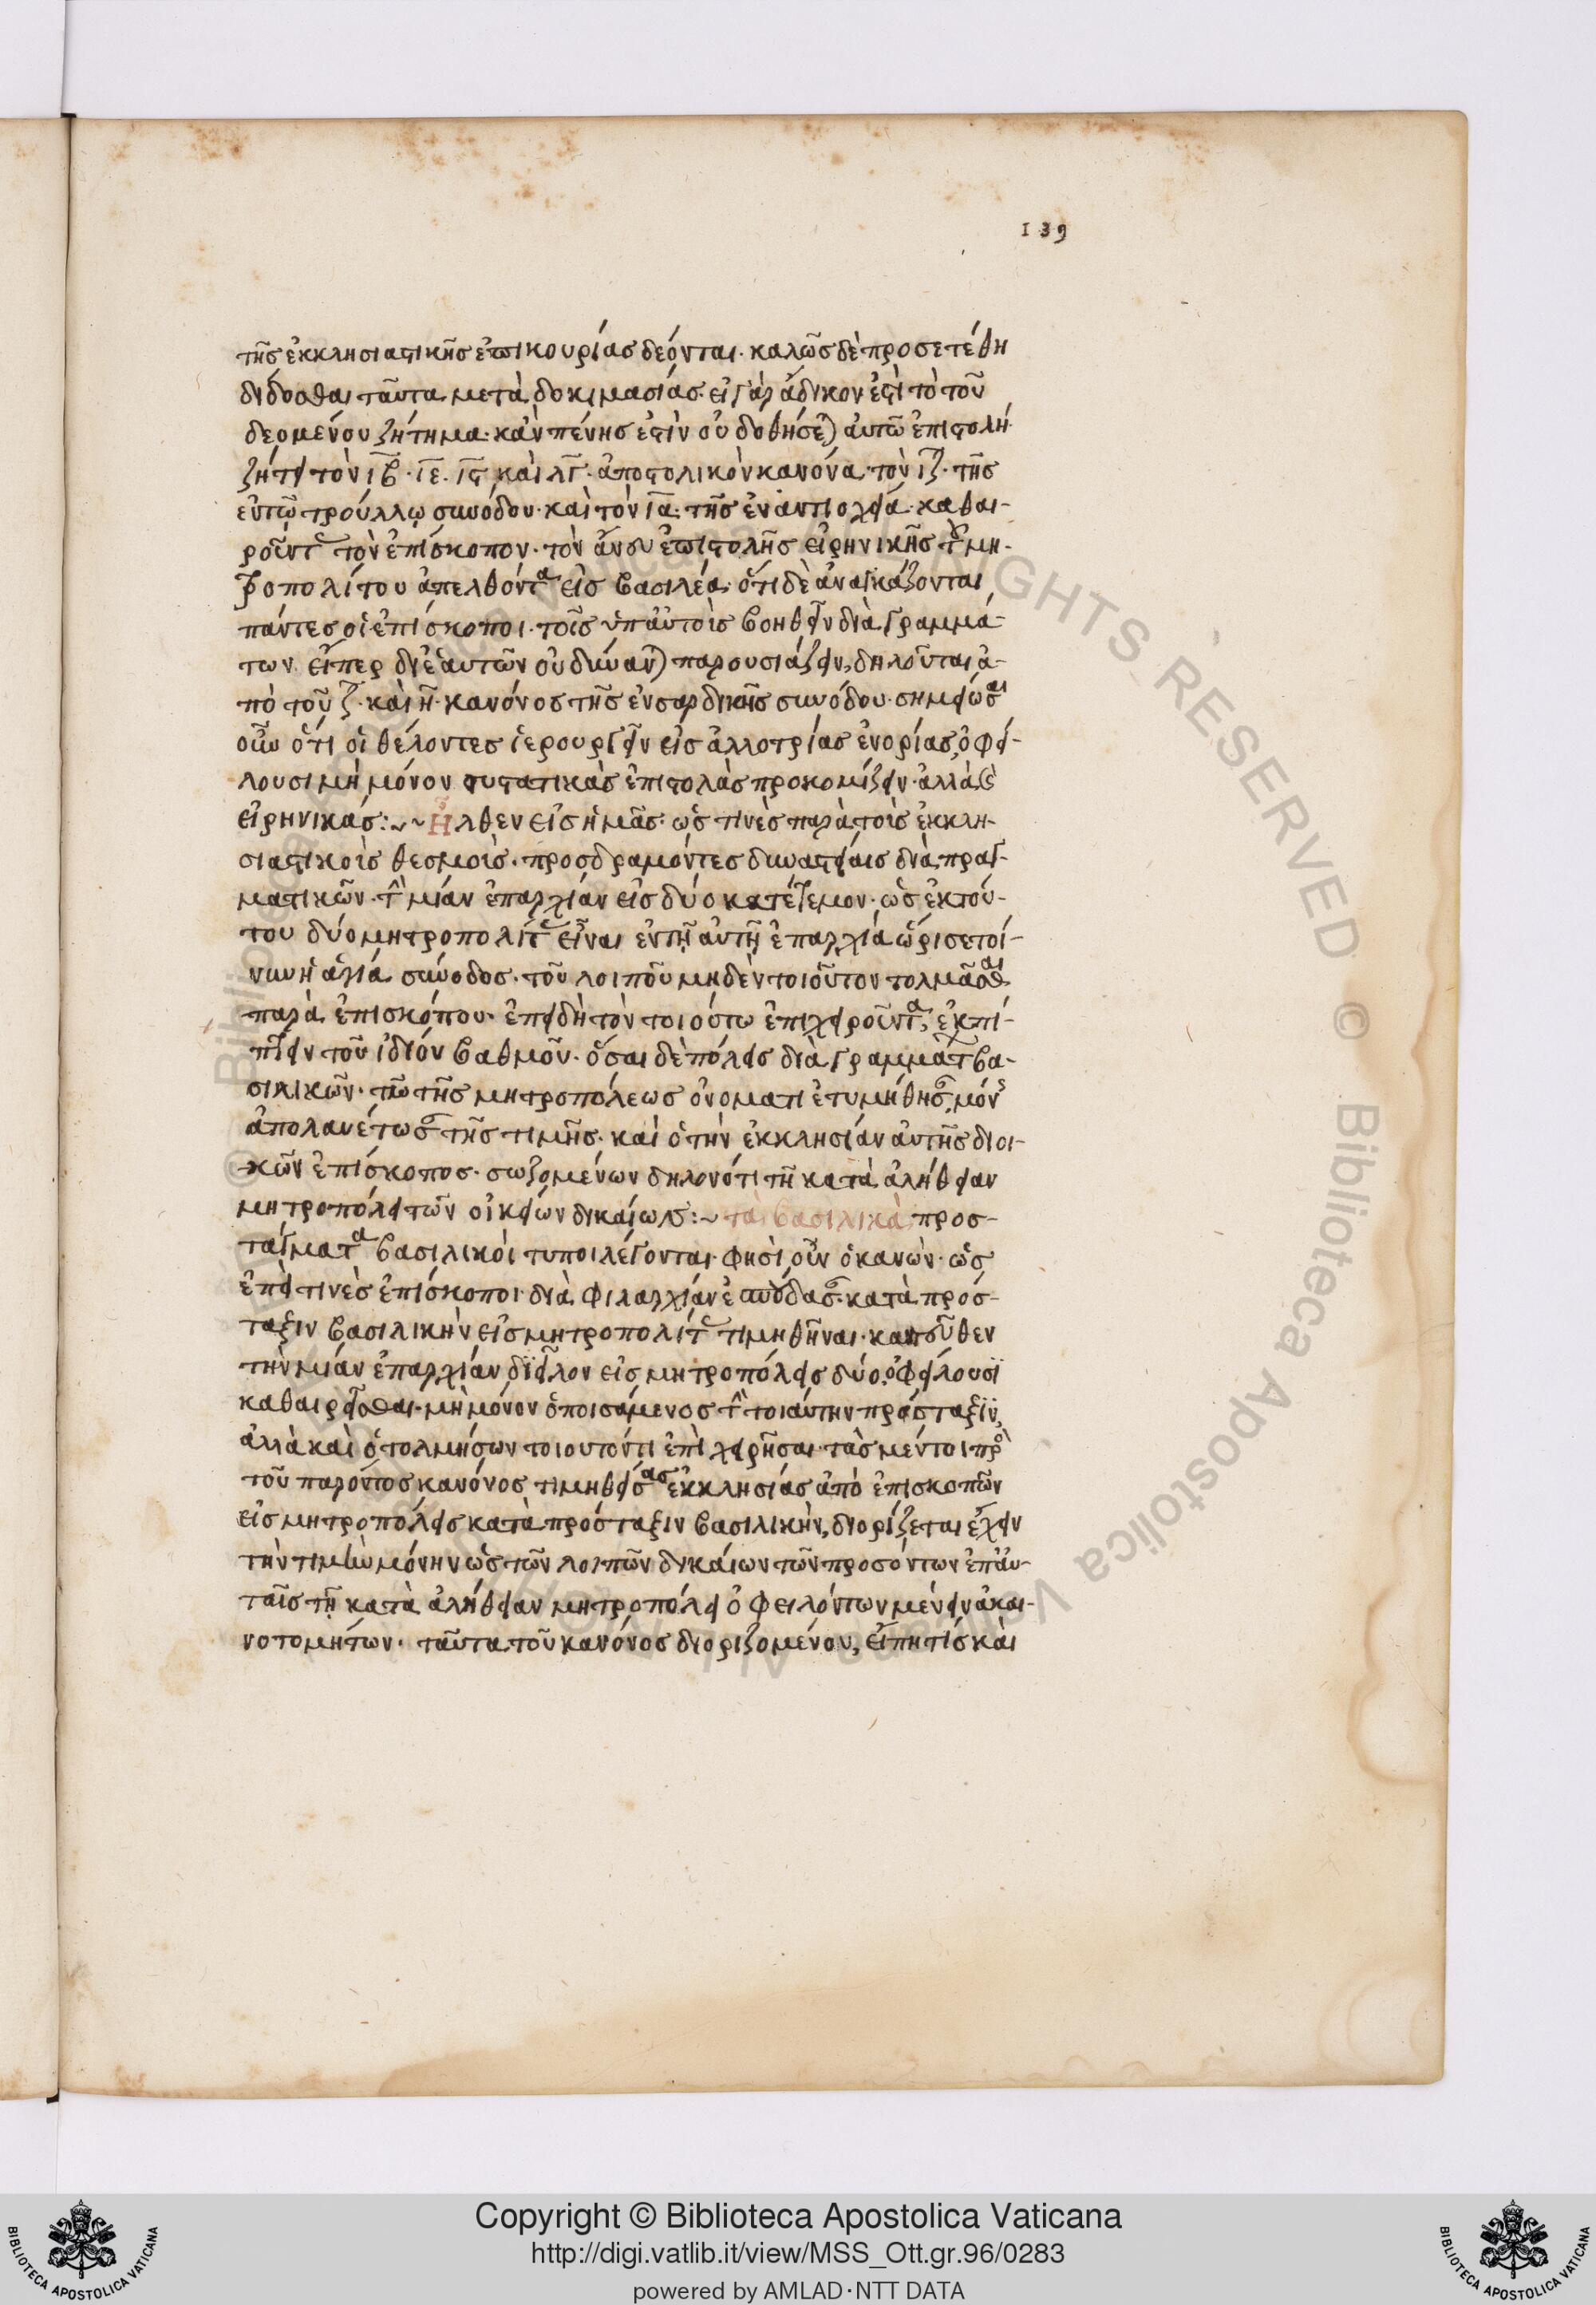 139
τῆς ἐκκλησιαστικῆς ἐπικουρίας δέονται· καλῶς δὲ προσετέθη
δίδοσθαι ταῦτα μετὰ δοκιμασίας· εἰ γὰρ ἄδικον ἐστὶ τὸ τοῦ
δεομένου ζήτημα· κἂν πένης ἐστὶν οὐ δοθήσετ) αὐτῶ ἐπιστολή·
ζήτει τὸν ιβ· ιε· ις καὶ λγ· ἀποστολικὸν κανόνα· τὸν ιζ· τῆς
ἐν τῶ τρούλλω συνόδου· καὶ τὸν ια· τῆς ἐν ἀντιοχεία· καθαι-
ροῦντ τὸν ἐπίσκοπον· τὸν ἄνευ ἐπιστολῆς εἰρηνικῆς τ μη-
τροπολίτου ἀπελθόντα εἰς βασιλέα· ὅτι δὲ ἀναγκάζονται
πάντες οἱ ἐπίσκοποι· τοῖς ὑπ' αὐτοῖς βοηθεῖν διὰ γραμμά-
των εἴπερ δι' ἑαυτῶν οὐ δύναν) παρουσιάζειν, δηλοῦται ἀ-
πὸ τοῦ ζ· καὶ η· κανόνος τῆς ἐν σαρδικῆς συνόδου· σημείωσαι
οὖν ὅτι οἱ θέλοντες ἱερουργεῖν εἰς ἀλλοτρίας ἐνορίας, ὀφεί-
λουσι μὴ μόνον συστατικὰς ἐπιστολὰς προκομίζειν· ἀλλὰ καὶ
εἰρηνικάς:~~ Ἦλθεν εἰς ἡμᾶς· ὥς τινες παρὰ τοῖς ἐκκλη-
σιαστικοῖς θεσμοῖς· προσδραμόντες δυναστείαις διὰ πραγ-
ματικῶν· τὴν μίαν ἐπαρχίαν εἰς δύο κατέτεμον· ὡς ἐκ τού-
του δύο μητροπολίτ εἶναι ἐν τῆ αὐτῆ ἐπαρχία ὥρισε τοί-
νυν ἡ ἁγία σύνοδος· τοῦ λοιποῦ μηδὲν τοιοῦτον τολμᾶσθαι
παρὰ ἐπισκόπου· ἐπειδὴ τὸν τοιούτω ἐπιχειροῦντα, ἐκπί-
πτειν τοῦ ἰδίου βαθμοῦ· ὅσαι δὲ πόλεις διὰ γραμμάτ βα-
σιλικῶν· τῶ τῆς μητροπόλεως ὀνόματι ἐτυμήθησ, μόν
ἀπολαυέτωσ τῆς τιμῆς· καὶ ὁ τὴν ἐκκλησίαν αὐτῆς διοι-
κῶν ἐπίσκοπος· σωζομένων δηλονότι τῆ κατὰ ἀλήθειαν
μητροπόλει τῶν οἰκείων δικαίων:~ τὰ βασιλικὰ προσ-
τάγματα βασιλικοὶ τύποι λέγονται· φησὶ οὖν ὁ κανών· ὡς
ἐπεὶ τινὲς ἐπίσκοποι διὰ φιλαρχίαν ἐσπούδασ· κατὰ πρόσ-
ταξιν βασιλικὴν εἰς μητροπολίτ τιμηθῆναι· κἀντεῦθεν
τὴν μίαν ἐπαρχίαν διεῖλον εἰς μητροπόλεις δύο, ὀφείλουσι
καθαιρεῖσθαι· μὴ μόνον ὁ ποισάμενος τὴν τοιαύτην πρόσταξιν,
ἀλλὰ καὶ ὁ τολμήσων τοιουτόντι ἐπιχειρῆσαι· τὰς μέντοι πρὸ
τοῦ παρόντος κανόνος τιμηθείσας ἐκκλησίας ἀπὸ ἐπισκοπῶν
εἰς μητροπόλεις κατὰ πρόσταξιν βασιλικὴν, διορίζεται ἔχειν
τὴν τιμὴν μόνην ὡς τῶν λοιπῶν δικαίων τῶν προσόντων ἐπ' αὐ-
ταῖς τῆ κατὰ ἀλήθειαν μητροπόλει ὀφειλόντων μένειν ἀκαι-
νοτομήτων· ταῦτα τοῦ κανόνος διοριζομένου, εἴπη τίς καὶ
Copyright © Biblioteca Apostolica Vaticana
http://digi.vatlib.it/view/MSS_Ott.gr.96/0283
powered by AMLAD·NTT DATA